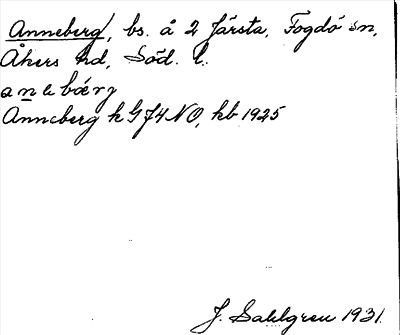 Anneberg, bs. å 2 Järsta, Fogdö sn,
Åkers hd, Söd. l.
anebærj
Anneberg k GJ4NO, hb 1925
J. Sahlgren 1931.